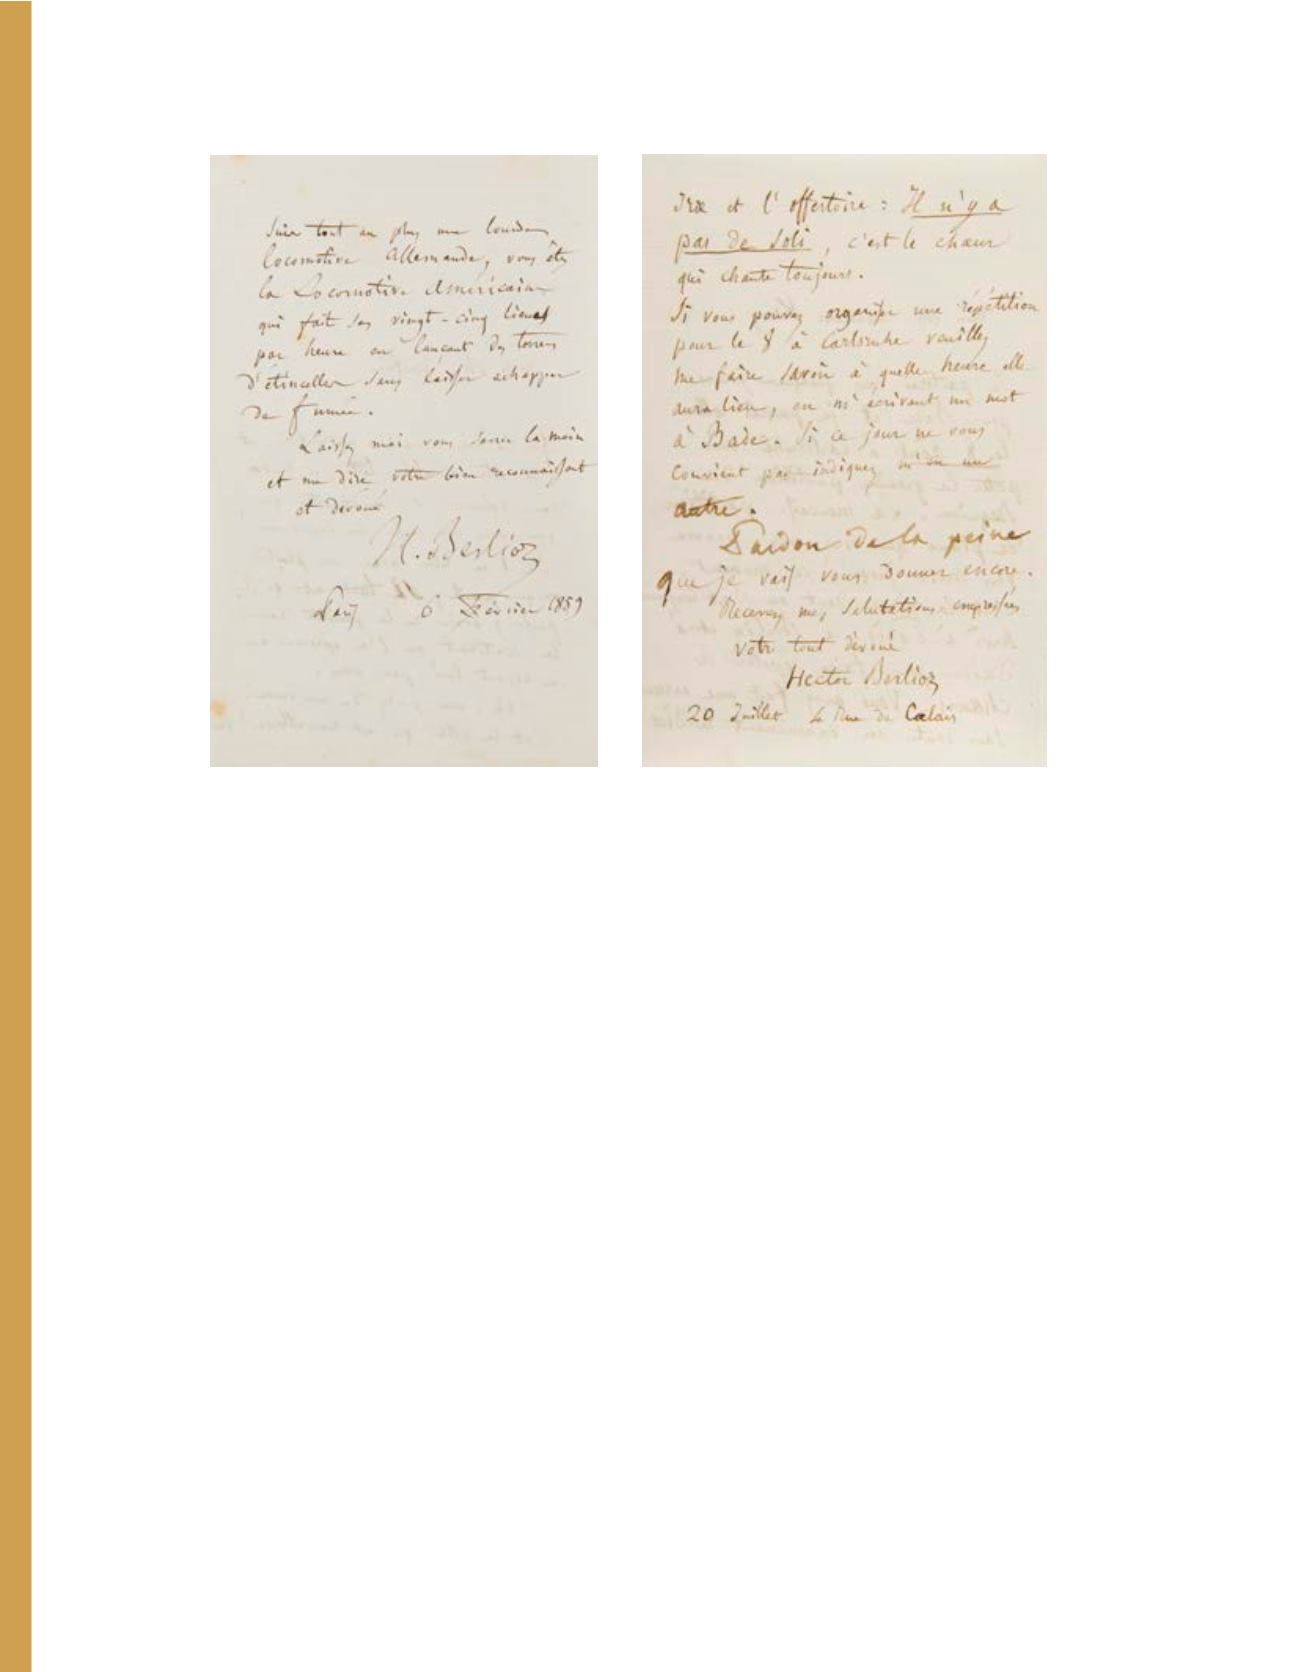 suis tout au plus une lourde
locomotive Allemande, vous êtes
la Locomotive Américaine
qui fait ses vingt-cinq lieues
par heure en lançant des torrens
d'étincelles sans laisser echapper
de fumée.
Laissez moi vous serrer la main
et me dire votre bien reconnaissant
et dévoué
H. Berlioz
Paris 6 Février 1859
Iræ et l'offertoire : Il n'y a
pas de Soli, c'est le chœur
qui chante toujours.
Si vous pouvez organiser une répétition
pour le 8 à Carlsruhe veuillez
me faire savoir à quelle heure elle
aura lieu, en m'écrivant un mot
à Bade. Si ce jour ne vous
convient pas indiquez m'en un
autre.
Pardon de la peine
que je vais vous donner encore.
Recevez mes salutations empressées
votre tout dévoué
Hector Berlioz
20 Juillet 4 Rue de Calais